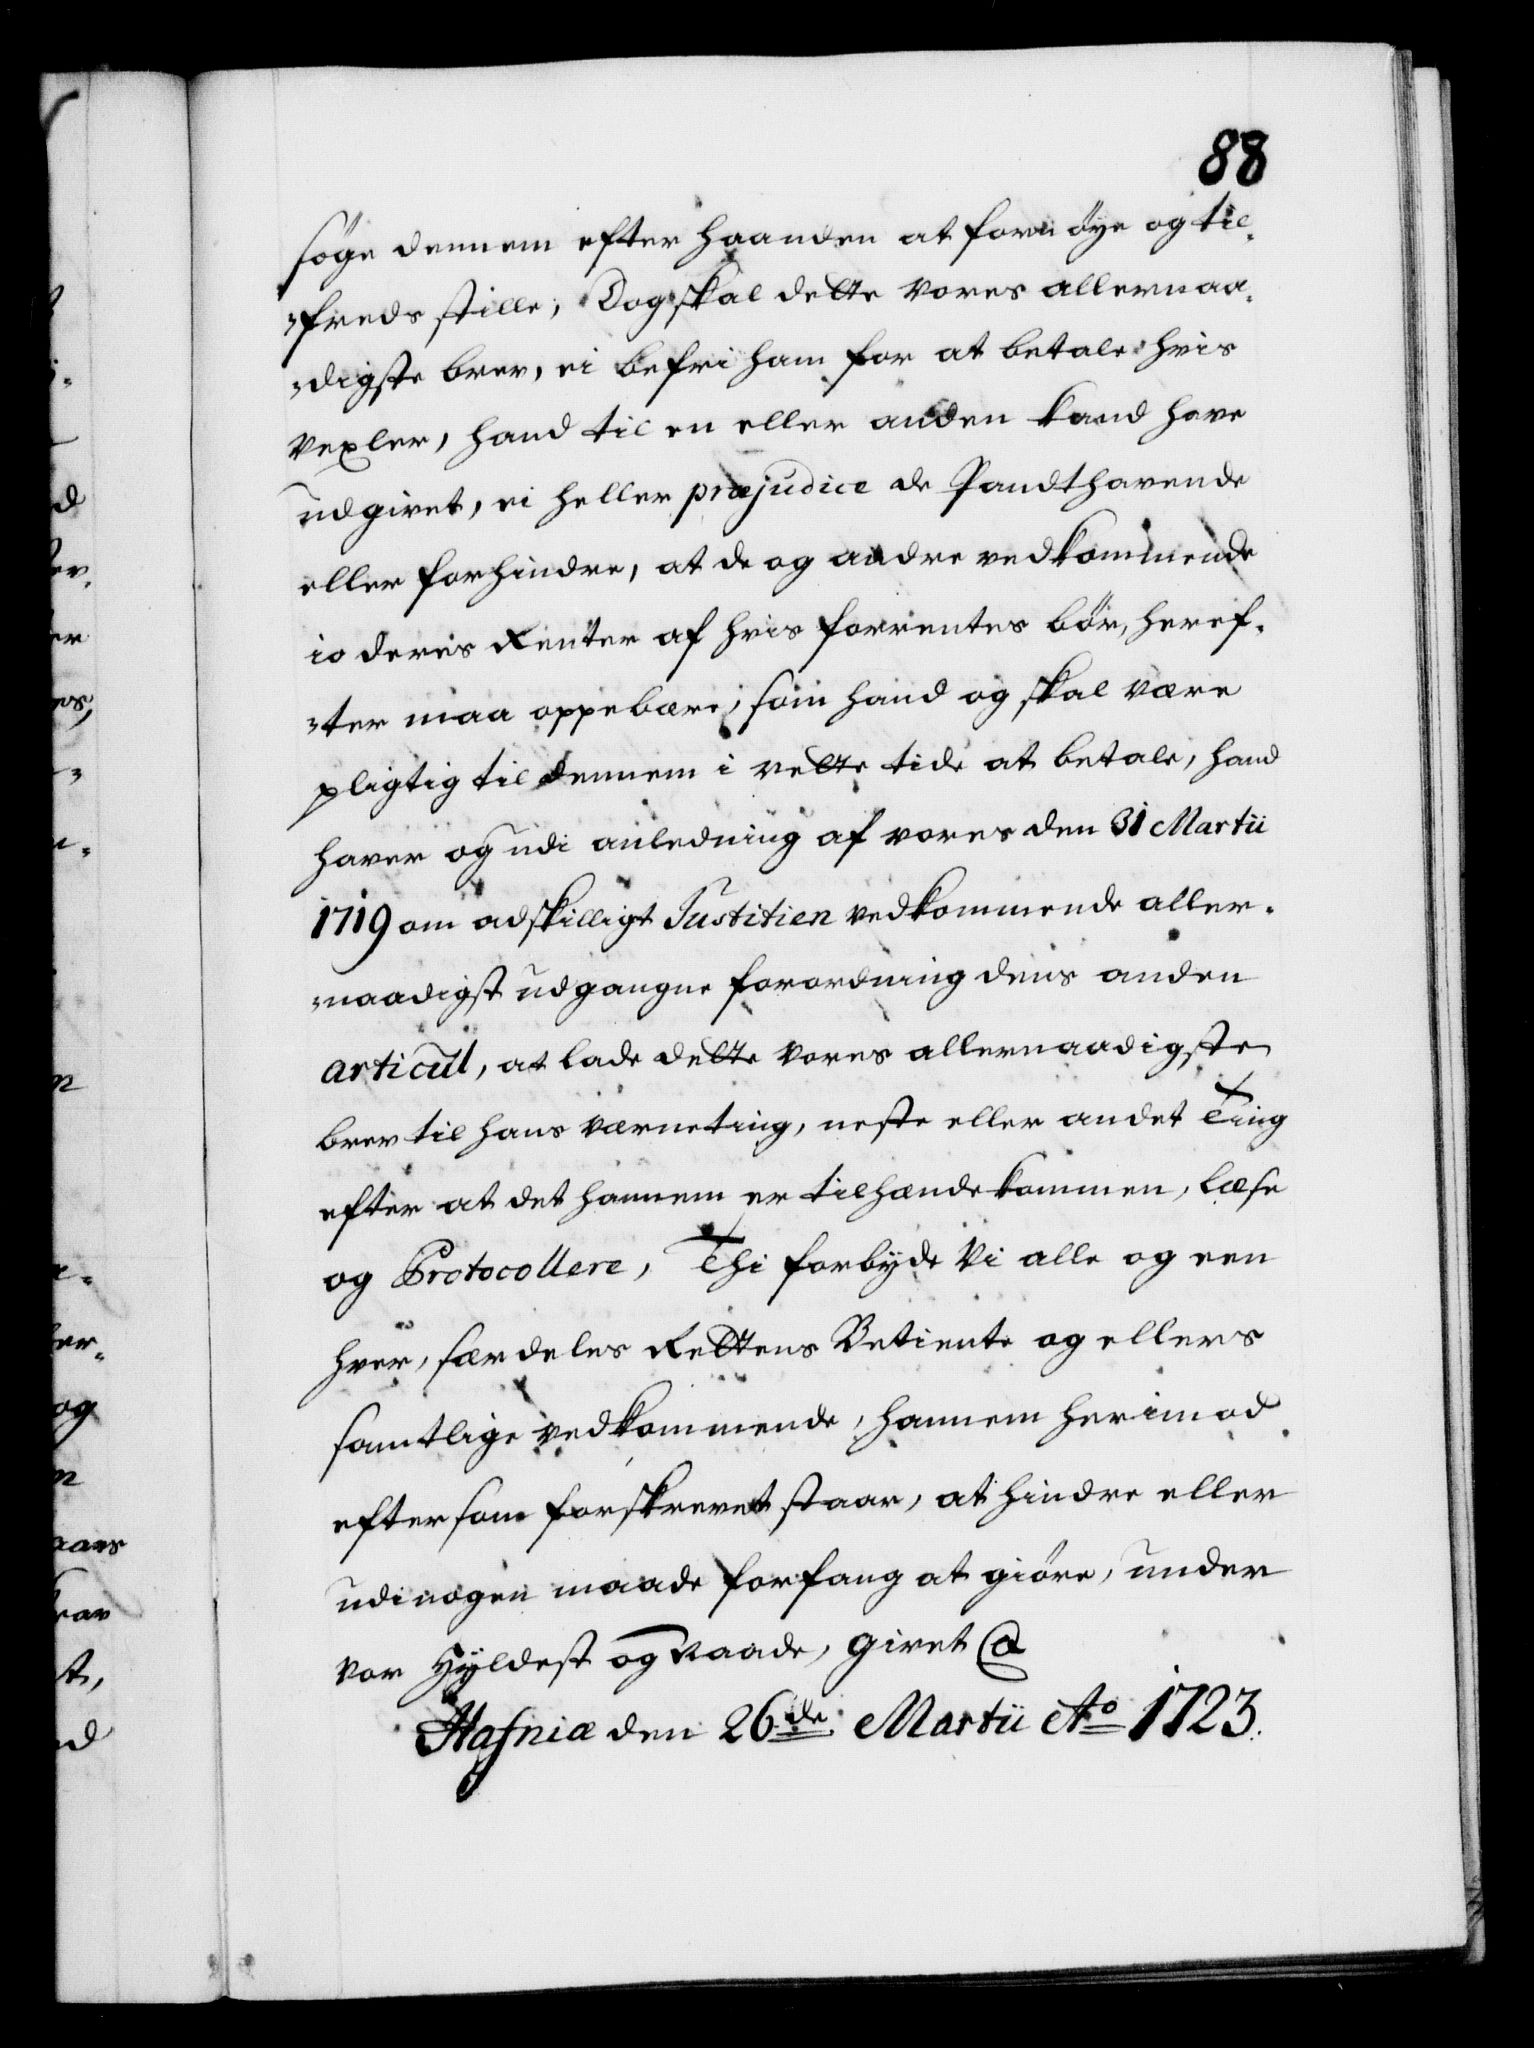 88
söge dennem efter haanden at fornöye og til,
„freds stille, Dog skal dette vores allernaa,
„digste brev, ei befri ham for at betale hvis
vexler, hand til en eller anden kand have
udgivet, ei heller præjudice de Pandthavende
eller forhindre, at de og andre vedkommende
io deris Renter af hvis forrentes bör, heref,
„ter maa oppebære, som hand og skal være
pligtig til dennem i rette tide at betale, hand
haver og udi anledning af vores den 31 Martii
1719 om adskilligt Justitien vedkommende aller,
„naadigst udgangne forordning dens anden
articul, at lade dette vores allernaadigste
brev til hans værneting, neste eller andet Ting
efter at det hannem er tilhændekommen, læse
og Protocollere, Thi forbyde Vi alle og een
hver, særdeles Rettens Betiente og ellers
samtlige vedkommende, hannem herimod
eftersom forskrevet staar, at hindre eller
udi nogen maade forfang at giöre, under
vor Hyldest og Naade, givet @
Hafniæ den 26de Martii Ao 1723.